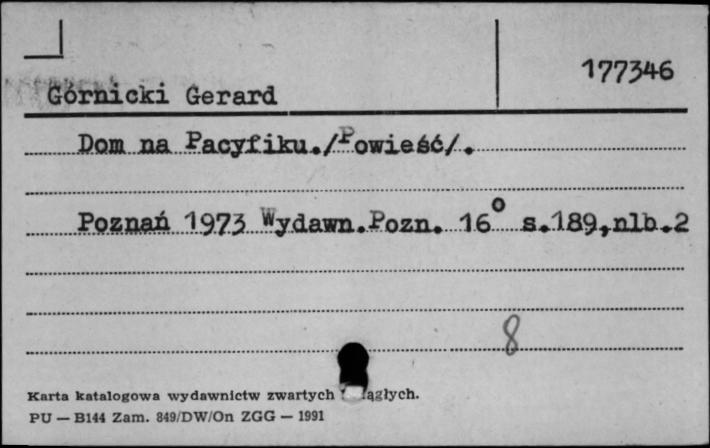 177346
Górnicki Gerard
Dom na Pacyfiku./Powieść/.
Poznań 1973 Wydawn.Pozn. 16° s.189,nlb.2
8
Karta katalogowa wydawnictw zwartych
PU — B144 Zam. 849/DW/On ZGG — 1991